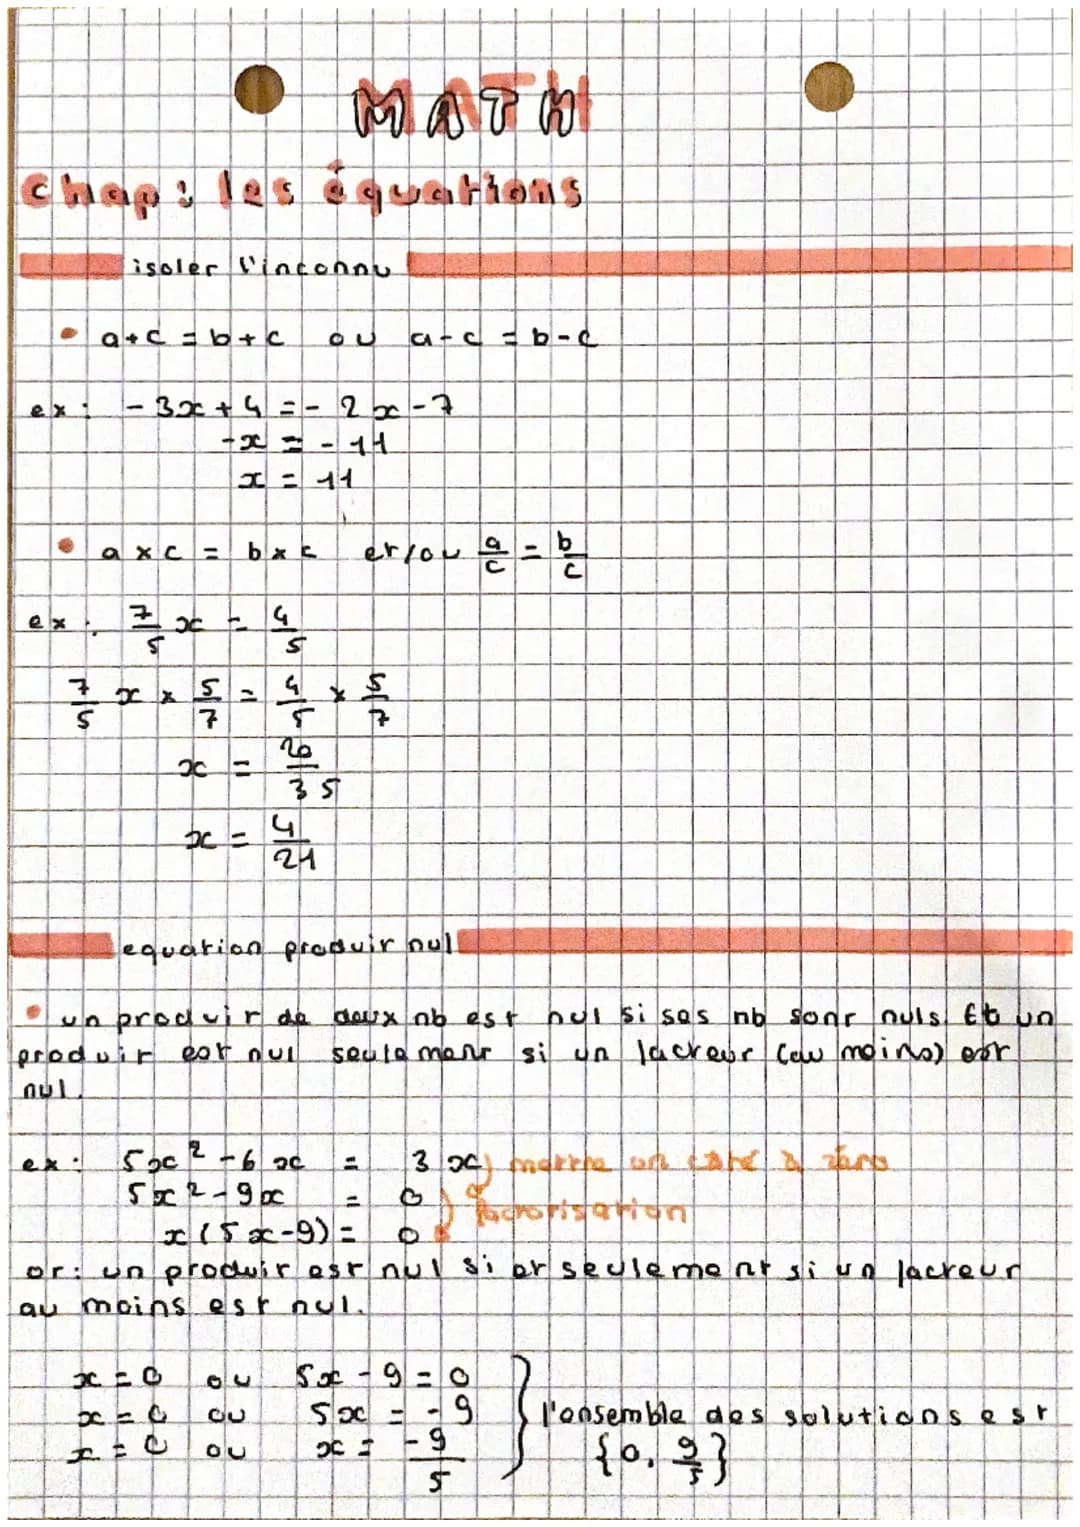 MATH
Chap: les équations
isoler l'inconnu
• a+c = b+c ou a-c = b-c
ex: -3x+4 = -2x-7
-x = -11
x = 11
• a×c = b×c et/ou a/c = b/c
ex: 7/5 x = 4/5
7/5 x × 5/7 = 4/5 × 5/7
x = 20/35
x = 4/21
equation produit nul
• un produit de deux nb est nul si ses nb sont nuls. Et un
produit est nul seulement si un facteur (au moins) est
nul.
ex: 5x²-6x = 3x) mettre un côté à zéro
5x²-9x = 0
) factorisation
x(5x-9) = 0
or: un produit est nul si et seulement si un facteur
au moins est nul.
x = 0 ou 5x-9 = 0
x = 0 ou 5x = -9 } l'ensemble des solutions est
x = 0 ou x = -9/5 {0. 9/5}